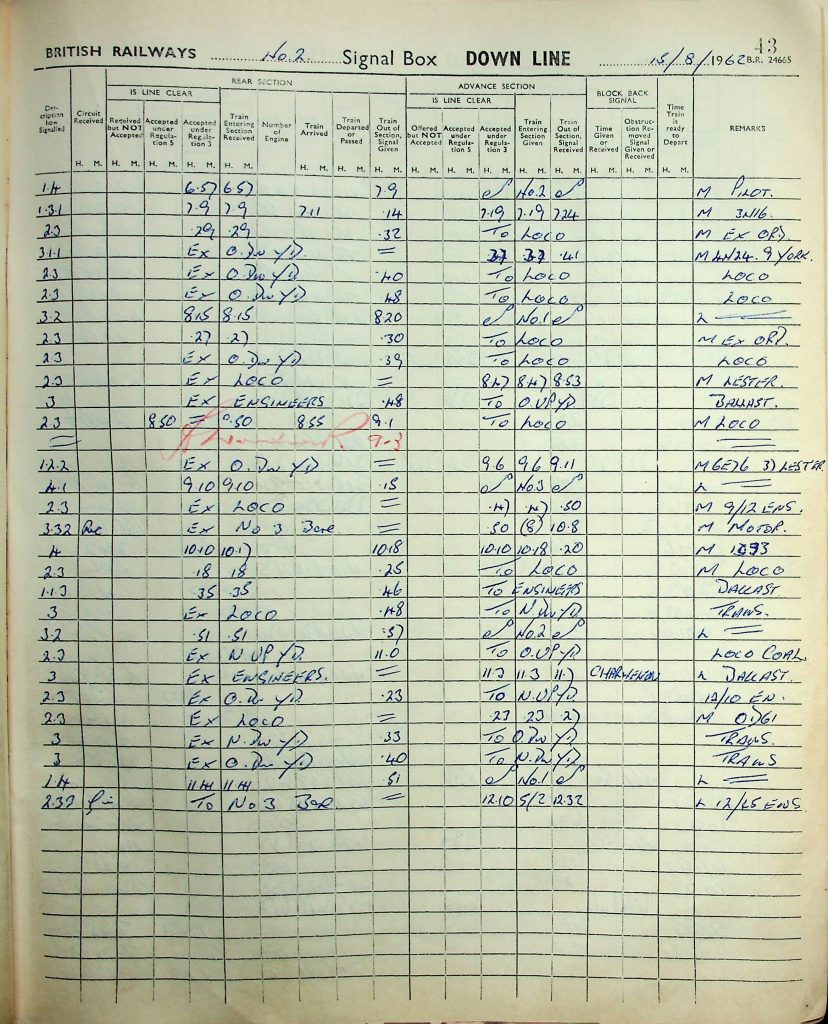 43
BRITISH RAILWAYS No.2. Signal Box DOWN LINE 15/8/1962 B.R. 24665
REAR SECTION ADVANCE SECTION BLOCK BACK SIGNAL
IS LINE CLEAR IS LINE CLEAR
Description how Signalled Circuit Received Received but NOT Accepted Accepted under Regulation 5 Accepted under Regulation 3 Train Entering Section Received Number of Engine Train Arrived Train Departed or Passed Train Out of Section, Signal Given Offered but NOT Accepted Accepted under Regulation 5 Accepted under Regulation 3 Train Entering Section Given Train Out of Section, Signal Received Time Given or Received Obstruction Removed Signal Given or Received Time Train is ready to Depart REMARKS
H. M. H. M. H. M. H. M. H. M. H. M. H. M. H. M. H. M. H. M. H. M. H. M. H. M. H. M. H. M. H. M.
1.4 6.57 6.57 7.9 No.2 M PILOT.
1.3.1 7.9 7.9 7.11 .14 7.19 7.19 7.24 M 3N16.
2.3 .29 .29 .32 To LOCO M EX ORD.
3.1.1 Ex O.Dn YD = 37 37 .41 M 9 YORK.
2.3 Ex O.Dn YD .40 To LOCO LOCO
2.3 Ex O.Dn YD .48 To LOCO LOCO
3.2 8.15 8.15 8.20 No.1 L =
2.3 .27 .27 .30 To LOCO M EX ORD.
2.3 Ex O.Dn YD .39 To LOCO LOCO
2.3 Ex LOCO = 8.47 8.47 8.53 M LESTER.
3 Ex ENGINEERS .48 To O.UP YD BALLAST.
2.3 8.50 = .50 8.55 9.1 To LOCO M LOCO
= 9.3 =
1.2.2 Ex O.Dn YD = 9.6 9.6 9.11 M 6E76 37 LESTER
4.1 9.10 9.10 .15 No.3 L =
2.3 Ex LOCO = .47 .47 .50 M 9/12 ENS.
3.32 Ex No 3 = .50 (8) 10.8 M MOTOR.
4 10.10 10.17 10.18 10.10 10.18 .20 M
2.3 .18 18 .25 To LOCO M LOCO
1.1.3 .35 .35 .46 To ENGINEERS BALLAST
3 Ex LOCO .48 To N.Dn YD. TRANS.
3.2 .51 .51 .57 No.2 L =
2.3 Ex N.UP YD. 11.0 To O.UP YD. LOCO COAL.
3 Ex ENGINEERS. = 11.3 11.3 11.7 L BALLAST.
2.3 Ex O.Dn YD. .23 To N.UP YD. 12/10 EN.
2.3 Ex LOCO = .23 23 .27 M
3 Ex N.Dn YD. .33 To O.Dn YD. TRANS.
3 Ex O.Dn YD. .40 To N.Dn YD. TRANS
1.4 11.44 11.44 .51 No.1 L =
2.32 To No 3 = 12.10 12.32 L 12/25 ENS